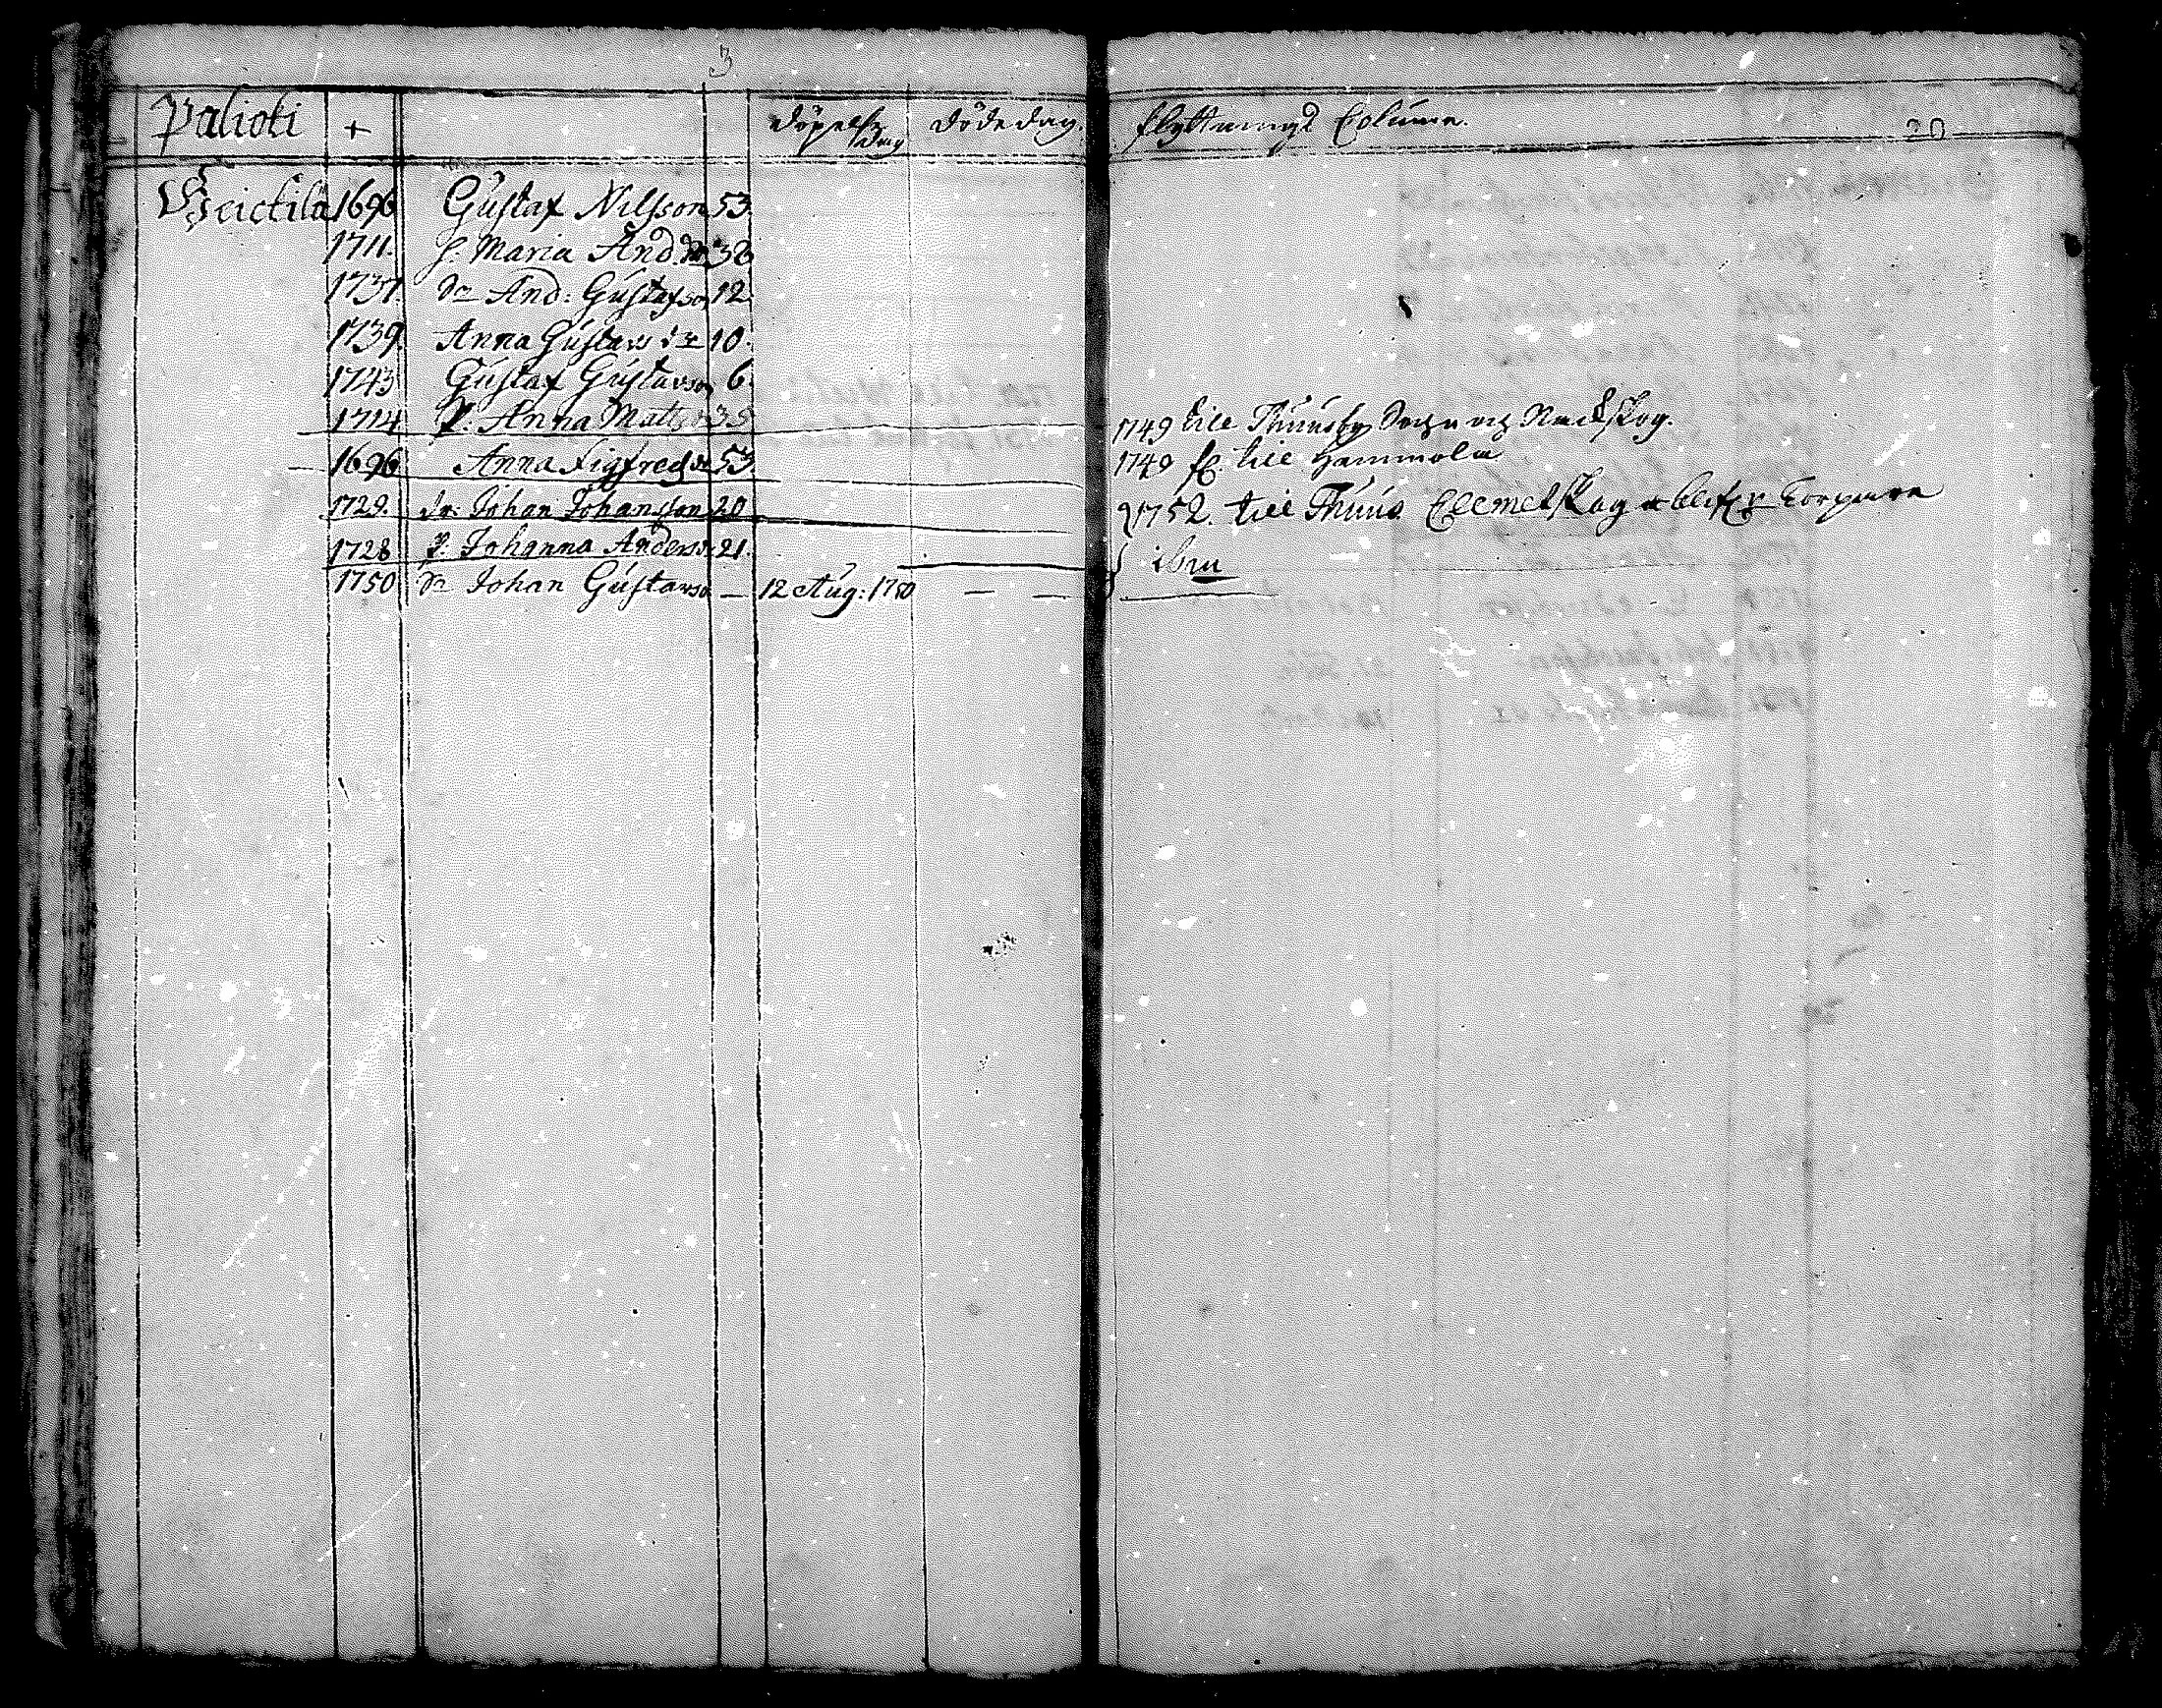 3
Palioki + döpelse dag dödedag. flyttningz Column. 20
Seictilä 1696 Gustaf Nilsson 53.
1711. h. Maria And. dr 38
1737. Sn And: Gustafson 12.
1739. Anna Gustavs dr 10.
1743 Gustaf Gustavson 6.
1714 P: Anna Matts dr 35 1749 till Thuusby Sochn och
1696 Anna Sigfreds dr 53. 1749 fl. till Hammola
1729. dr: Johan Johansson 20 1752. till Thuus
1728 P: Johanna Anders dr 21. ibm
1750 Sn Johan Gustavso — 12 Aug: 1750 — —